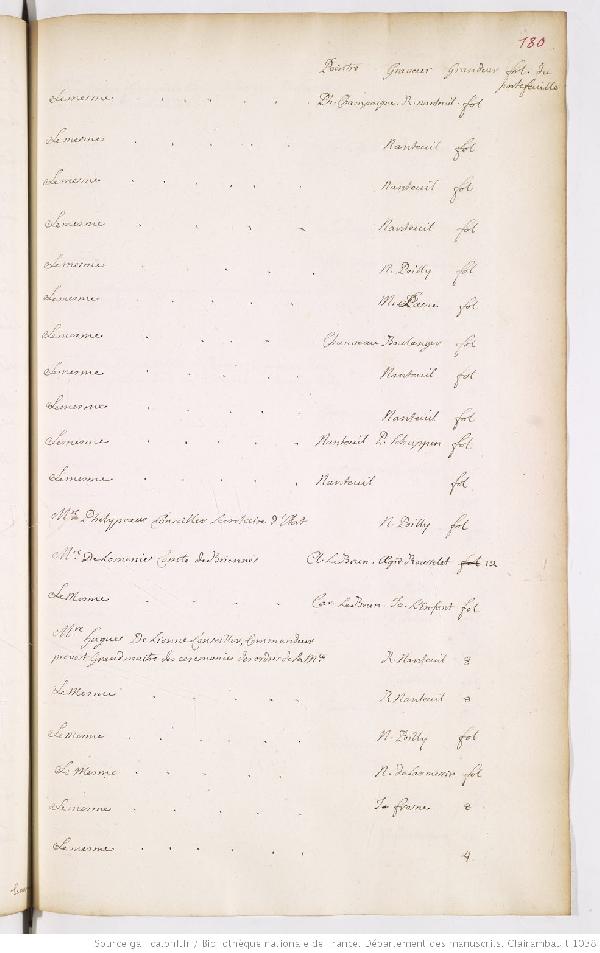 180
Peintre Graveur Grandeur fol. du
portefeuille
Le mesme . . . . . Ph. Champaigne. R. nanteuil. fol
Le mesme . . . . . Nanteuil fol
Le mesme . . . . . Nanteuil fol
Le mesme . . . . . Nanteuil fol
Le mesme . . . . . N. Poilly fol
Le mesme . . . . . fol
Le mesme . . . . . Chauveau Boulanger fol
Le mesme . . . . Nanteuil fol
Le mesme . . . . Nanteuil fol
Le mesme . . . . . Nanteuil P. Schuppen fol
Le mesme . . . . . Nanteuil fol
Mre Phelypeaux Conseiller Secretaire d'Etat N. Poilly fol
Mre De Lomenie Comte de Brienne C. LeBrun. Ægid Rousselet fol 12
Le Mesme . . . . Car. LeBrun. Ja. L'Enfant fol
Mre Hugues De Lionne Conseiller, Commandeur
prevost Grand maitre des ceremonies des ordres de sa Mté R. Nanteuil 8
Le Mesme . . . . . R Nanteuil 8
Le Mesme . . . . . N. Poilly fol
Le Mesme . . . . . N. de Larmessin fol
Le mesme . . . . . Ja frosne 8
Le mesme . . . . . 4
Source gallica.bnf.fr / Bibliothèque nationale de France. Département des manuscrits. Clairambault 1038